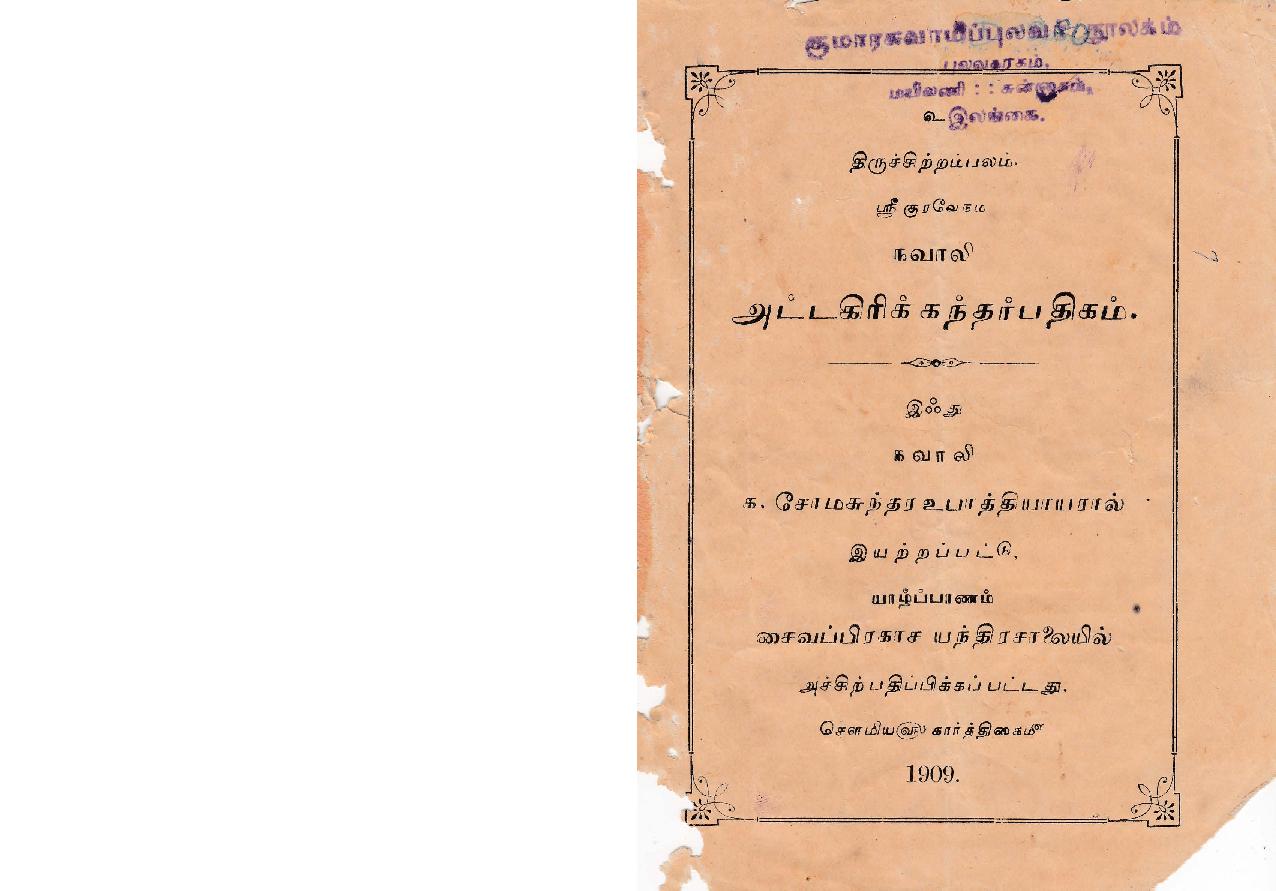 குமாரசுவாமிப்புலவர் நூலகம்
மயிலணி : : சுன்னாகம்,
உ இலங்கை.
திருச்சிற்றம்பலம்.
ஸ்ரீ குரவேநம
நவாலி
அட்டகிரிக் கந்தர்பதிகம்.
இஃது
நவாலி
க. சோமசுந்தர உபாத்தியாயரால்
இயற்றப்பட்டு,
யாழ்ப்பாணம்
சைவப்பிரகாச யந்திரசாலையில்
அச்சிற் பதிப்பிக்கப்பட்டது.
சௌமிய௵ கார்த்திகை௴
1909.